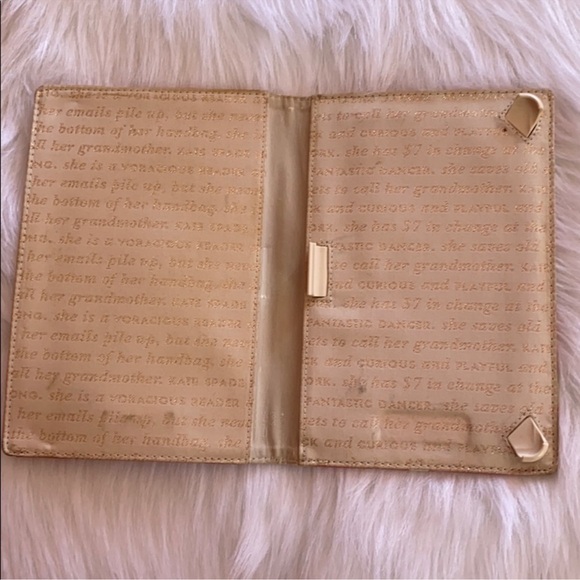 she is a VORACIOUS READER
her emails pile up, but she nev
the bottom of her handbag. she
all her grandmother. KATE SPADE
ONG. she is a VORACIOUS READER
her emails pile up, but she nev
the bottom of her handbag. she
all her grandmother. KATE SPADE
ONG. she is a VORACIOUS READER
her emails pile up, but she nev
the bottom of her handbag. she
all her grandmother. KATE SPADE
ONG. she is a VORACIOUS READER
her emails pile up, but she nev
the bottom of her handbag. she
all her grandmother. KATE SPADE
ONG. she is a VORACIOUS READER
her emails pile up, but she nev
the bottom of her handbag. she
ts to call her grandmother.
K and CURIOUS and PLAYFUL
ORK. she has $7 in change at
FANTASTIC DANCER. she saves old
ets to call her grandmother.
K and CURIOUS and PLAYFUL and
ORK. she has $7 in change at the
FANTASTIC DANCER. she saves old
to call her grandmother.
and CURIOUS and PLAYFUL and
she has $7 in change at the
FANTASTIC DANCER. she saves old
ets to call her grandmother. KATE
K and CURIOUS and PLAYFUL and
ORK. she has $7 in change at the
FANTASTIC DANCER. she saves
ets to call her grandmother.
K and CURIOUS and PLAYFUL